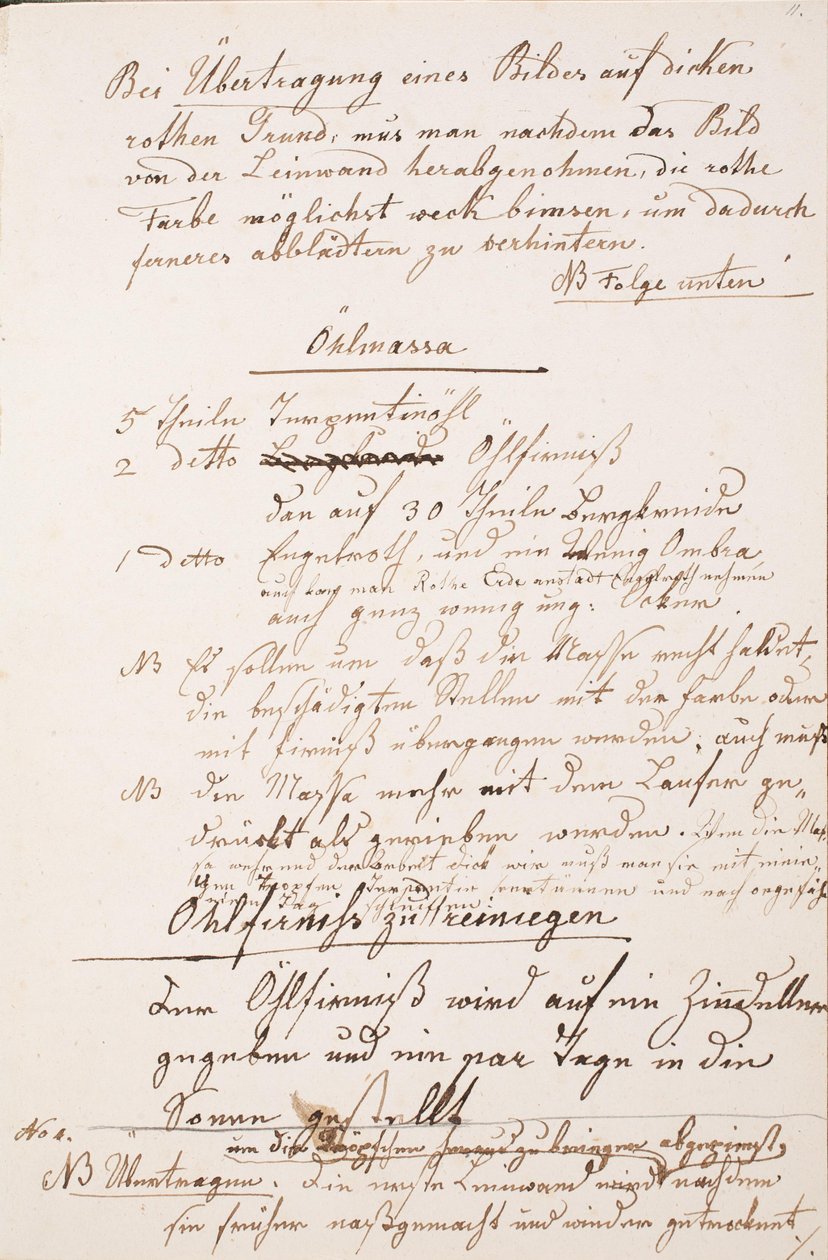 11.
Bei Übertragung eines Bildes auf dicken
rothen Grund, mus man nachdem das Bild
von der Leinwand herabgenohmen, die rothe
Farbe möglichst weck bimsen, um dadurch
ferneres abblädtern zu verhintern.
NB Folge unten
Öhlmassa
5 Theile Terpentinöhl
2 detto Öhlfirniß
dan auf 30 Theile Bergkreide
1 detto Engelroth, und ein Wenig Ombra
auch kan man Rothe Erde anstadt Engelroth nehmen
auch ganz wenig ung: Ocker.
NB Es sollen um daß die Masse recht haldet,
die beschädigten Stellen mit der Farbe oder
mit Firniß übergangen werden, auch muß
NB die Massa mehr mit dem Laufer ge„
drückt als gerieben werden. Wen die Mas„
sa wehrend der Arbeit dick wir muß man sie mit einie„
gen Tropfen Terpentin vertünnen und nach ongefähr
einen Tag schleiffen
Öhlfirniss zu reiniegen
Der Öhlfirniß wird auf ein Zinndeller
gegeben und ein par Tage in die
Sonen gestellt
No 4.
um die Knöpfchen heraus zu bringen abgebimst,
NB Übertragen. Die erste Leinwand wird nachdem
sie früher naßgemacht und wieder getrocknet ./.